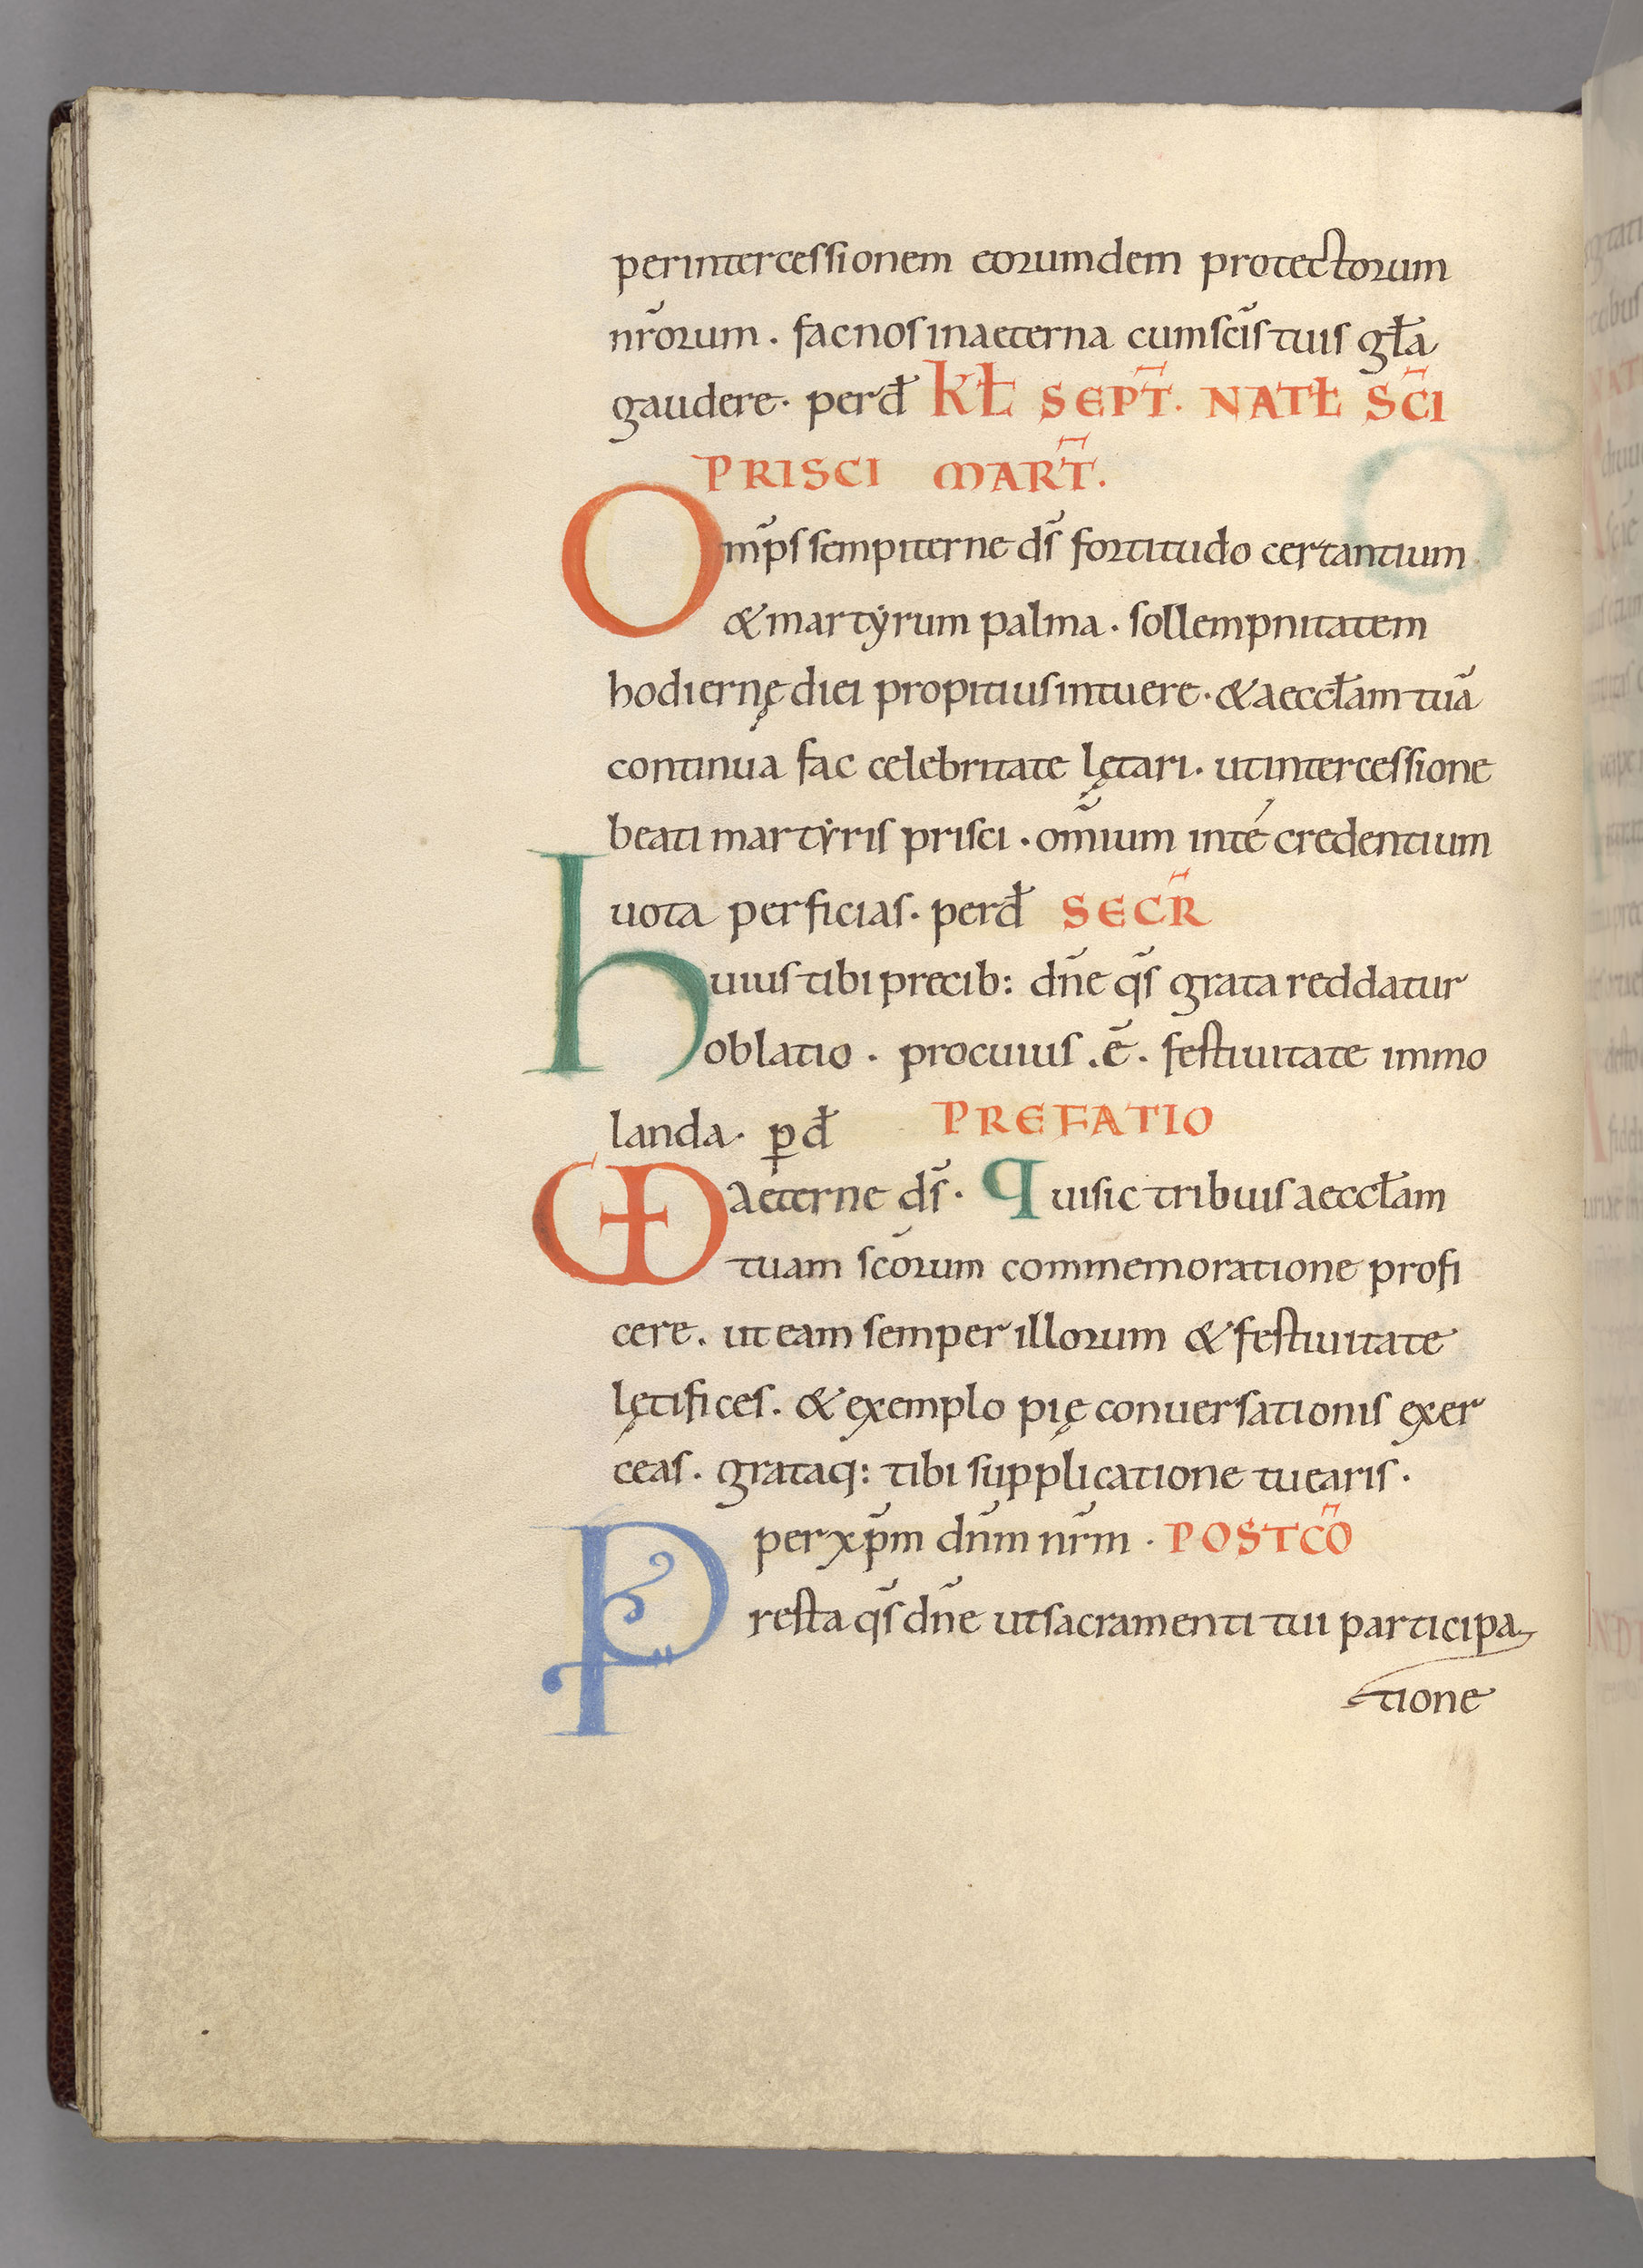 perintercessionem eorumdem protectorum
nr̄orum . facnos inaeterna cumsc̄is tuis gła
gaudere · perđ KŁ SEPT̄ . NATŁ SC̄I
PRISCI MART̄ .
Omp̄s sempiterne ds̄ fortitudo certantium
& martyrum palma . sollempnitatem
hodiernę diei propitius intuere · & aeccłam tuā
continua fac celebritate lętari . ut intercessione
beati martyris prisci . om̄ium inté credentium
uota perficias . perđ SECR̄
huius tibi precib: dn̄e qs̄ grata reddatur
oblatio . procuius .ē. festiuitate immo
landa . ꝑđ PREFATIO
VD aeterne ds̄ . Quisic tribuis aeccłam
tuam sc̄orum commemoratione profi
cere . ut eam semper illorum & festiuitate
lętifices . & exemplo pię conuersationis exer
ceas . grataq: tibi supplicatione tuearis .
per xp̄m dn̄m nr̄m . POSTCŌ
Presta qs̄ dn̄e utsacramenti tui participa
tione